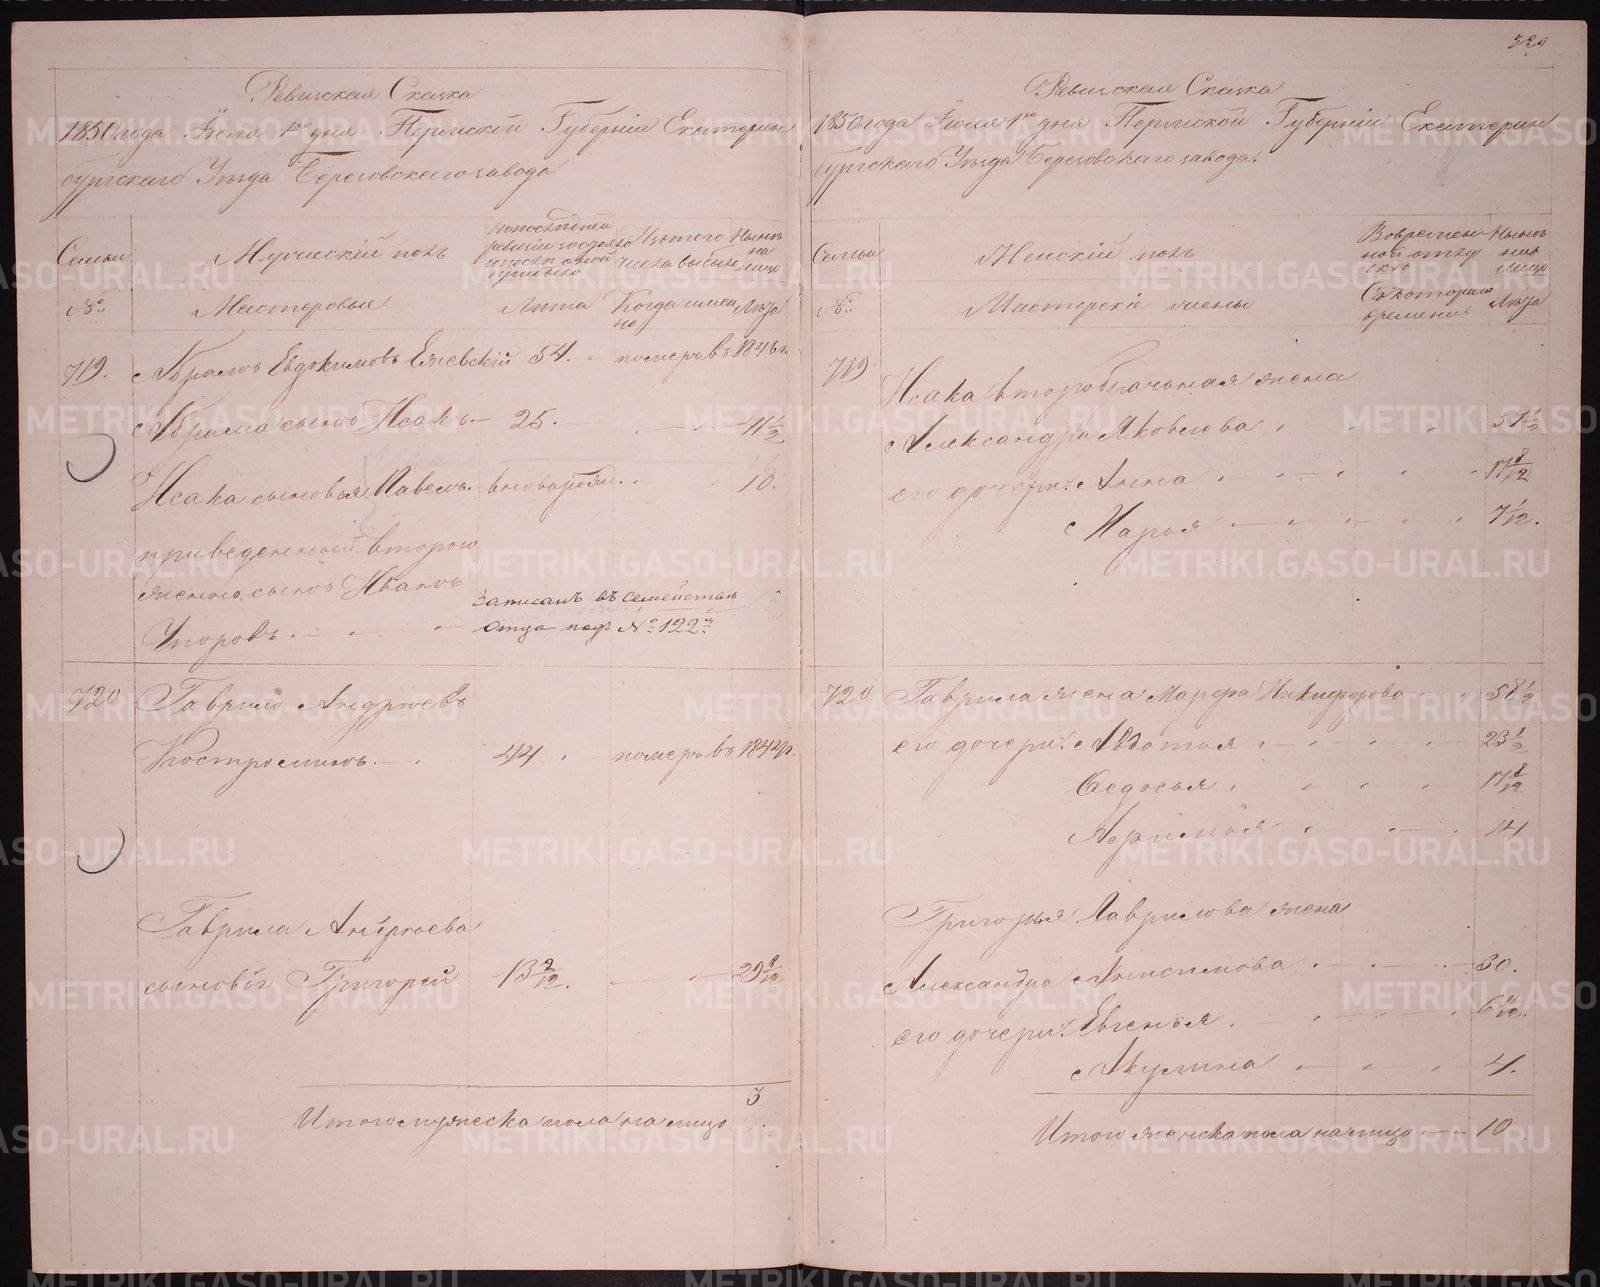 Ревизская Сказка
1850 года Июля 1го дня Пермской Губернiи Екатерин
бургскаго Уѣзда Березовскаго завода
Семьи
Мужескiй полъ
По последней ревизiи состояло и после оной прибыло
Изъ того числа выбыло
Нынѣ на лицо
№
Мастеровые
Лѣта
Когда имен но
Лѣта
719.
Абрамъ Евдокимовъ 54. померъ въ 1846 г.
Абрама сынъ Исакъ - 25. 41 1/2
Исака сыновья Павелъ - вновь рожд. 10.
приведенный второю
женою сынъ Иванъ
Записанъ въ семействѣ
Упоровъ.
отца подъ № 122.м
720
Гаврило Андреевъ
Костроминъ 44 померъ въ 1842 г.
Гаврила Андреева
сыновья Григорей 13 2/12. 29 8/12
Итого мужеска пола на лицо 3
320
Ревизская Сказка
1850 года Июля 1го дня Пермской Губернiи Екатерин
бургскаго Уѣзда Березовскаго завода.
Семьи
Женскiй полъ
Во временной отлучке
Нынѣ на лицо
№
Мастерскiе жены
Съ котораго времени
Лѣта
719
Исака второбрачьная жена
Александра Яковлева 51 1/2
его дочери: Анна 17 8/12
Марья 7 1/12.
720 Гаврила жена Марфа Никифорова 58 1/2
его дочери: Авдотья 23 1/2
Федосья 17 8/12
14
Григорья Гаврилова жена
Александра Анисимова 30.
его дочери: Евгенья 6 11/12.
Акулина 4.
Итого женска пола на лицо 10
METRIKI.GASO-URAL.RU